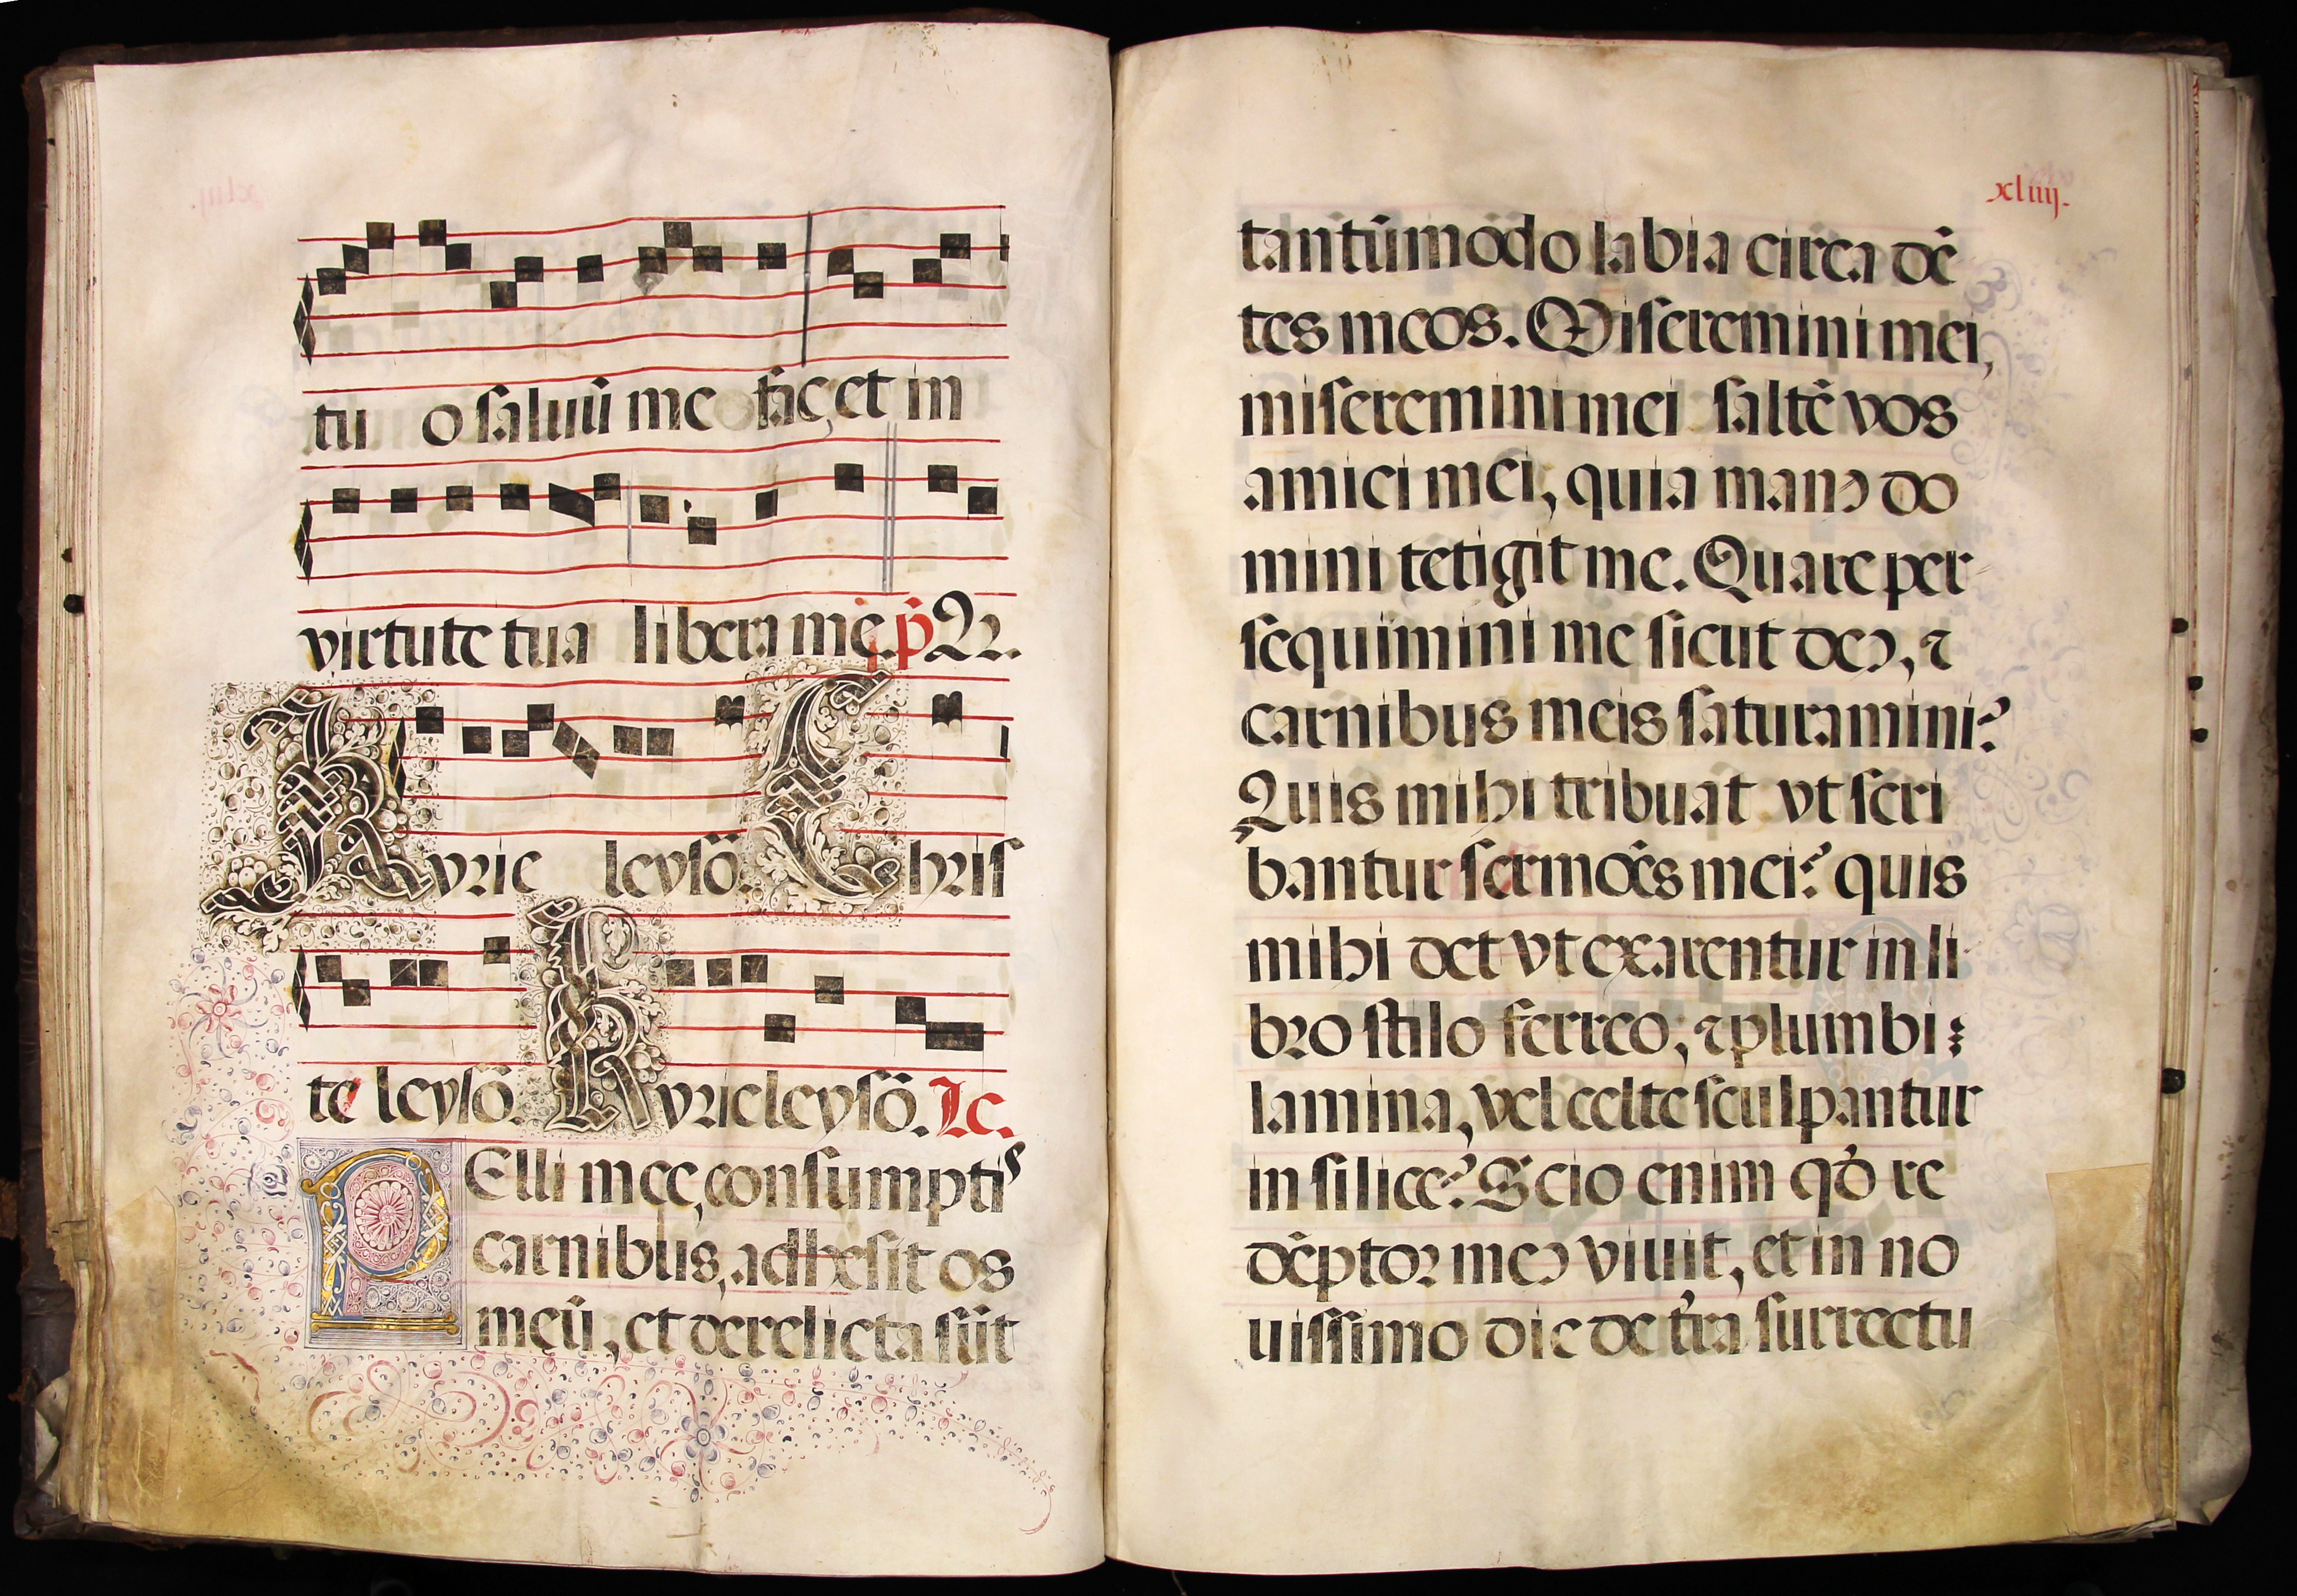 tu o saluū me fac, et in
virtute tua libera me. p̄ Ꝛꝛ.
Kyrie leysō. Chris
te leysō. Kyrieleysō. Le.
PElli mee, consumptis
carnibus, adhesit os
meū, et derelicta sūt
xliiij.
tantūmōdo labia circa dē
tes meos. Miseremini mei,
miseremini mei saltē vos
amici mei, quia manꝯ do
mini tetigit me. Quare per
sequimini me sicut deꝯ, ⁊
carnibus meis saturamini?
Quis mihi tribuat vt scri
bantur sermōes mei? quis
mihi det vt exarentur in li
bro stilo ferreo; ⁊ plumbi :
lamina, vel celte sculpantur
in silice? Scio enim qđ re
dēptor meꝯ viuit, et in no
uissimo die de t̄ra surrectu